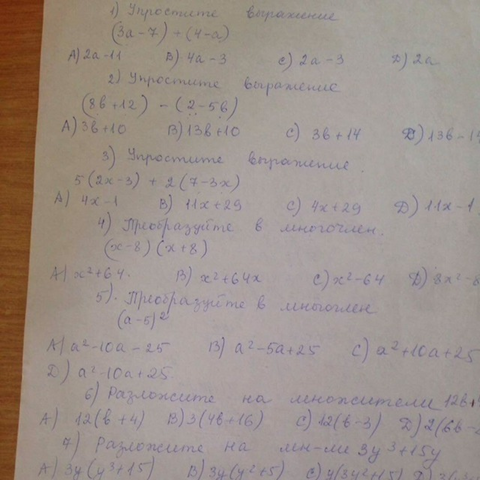 1) Упростите выражение
(3a-7)+(4-a)
A) 2a-11 B) 4a-3 C) 2a-3 D) 2a
2) Упростите выражение
(8b+12) - (2-5b)
A) 3b+10 B) 13b+10 C) 3b+14 D) 13b-14
3) Упростите выражение
5(2x-3) + 2(7-3x)
A) 4x-1 B) 11x+29 C) 4x+29 D) 11x-1
4) Преобразуйте в многочлен.
(x-8)(x+8)
A) x²+64. B) x²+64x C) x²-64 D) 8x²-8
5). Преобразуйте в многочлен
(a-5)²
A) a²-10a-25 B) a²-5a+25 C) a²+10a+25
D) a²-10a+25
6) Разложите на множители
A) 12(b+4) B) 3(4b+16) C) 12(b-3) D) 2(6b-
7) Разложите на мн-ли 3y³+15y
A) 3y(y³+15) B) 3y(y²+5) C) y(3y²+15) D)